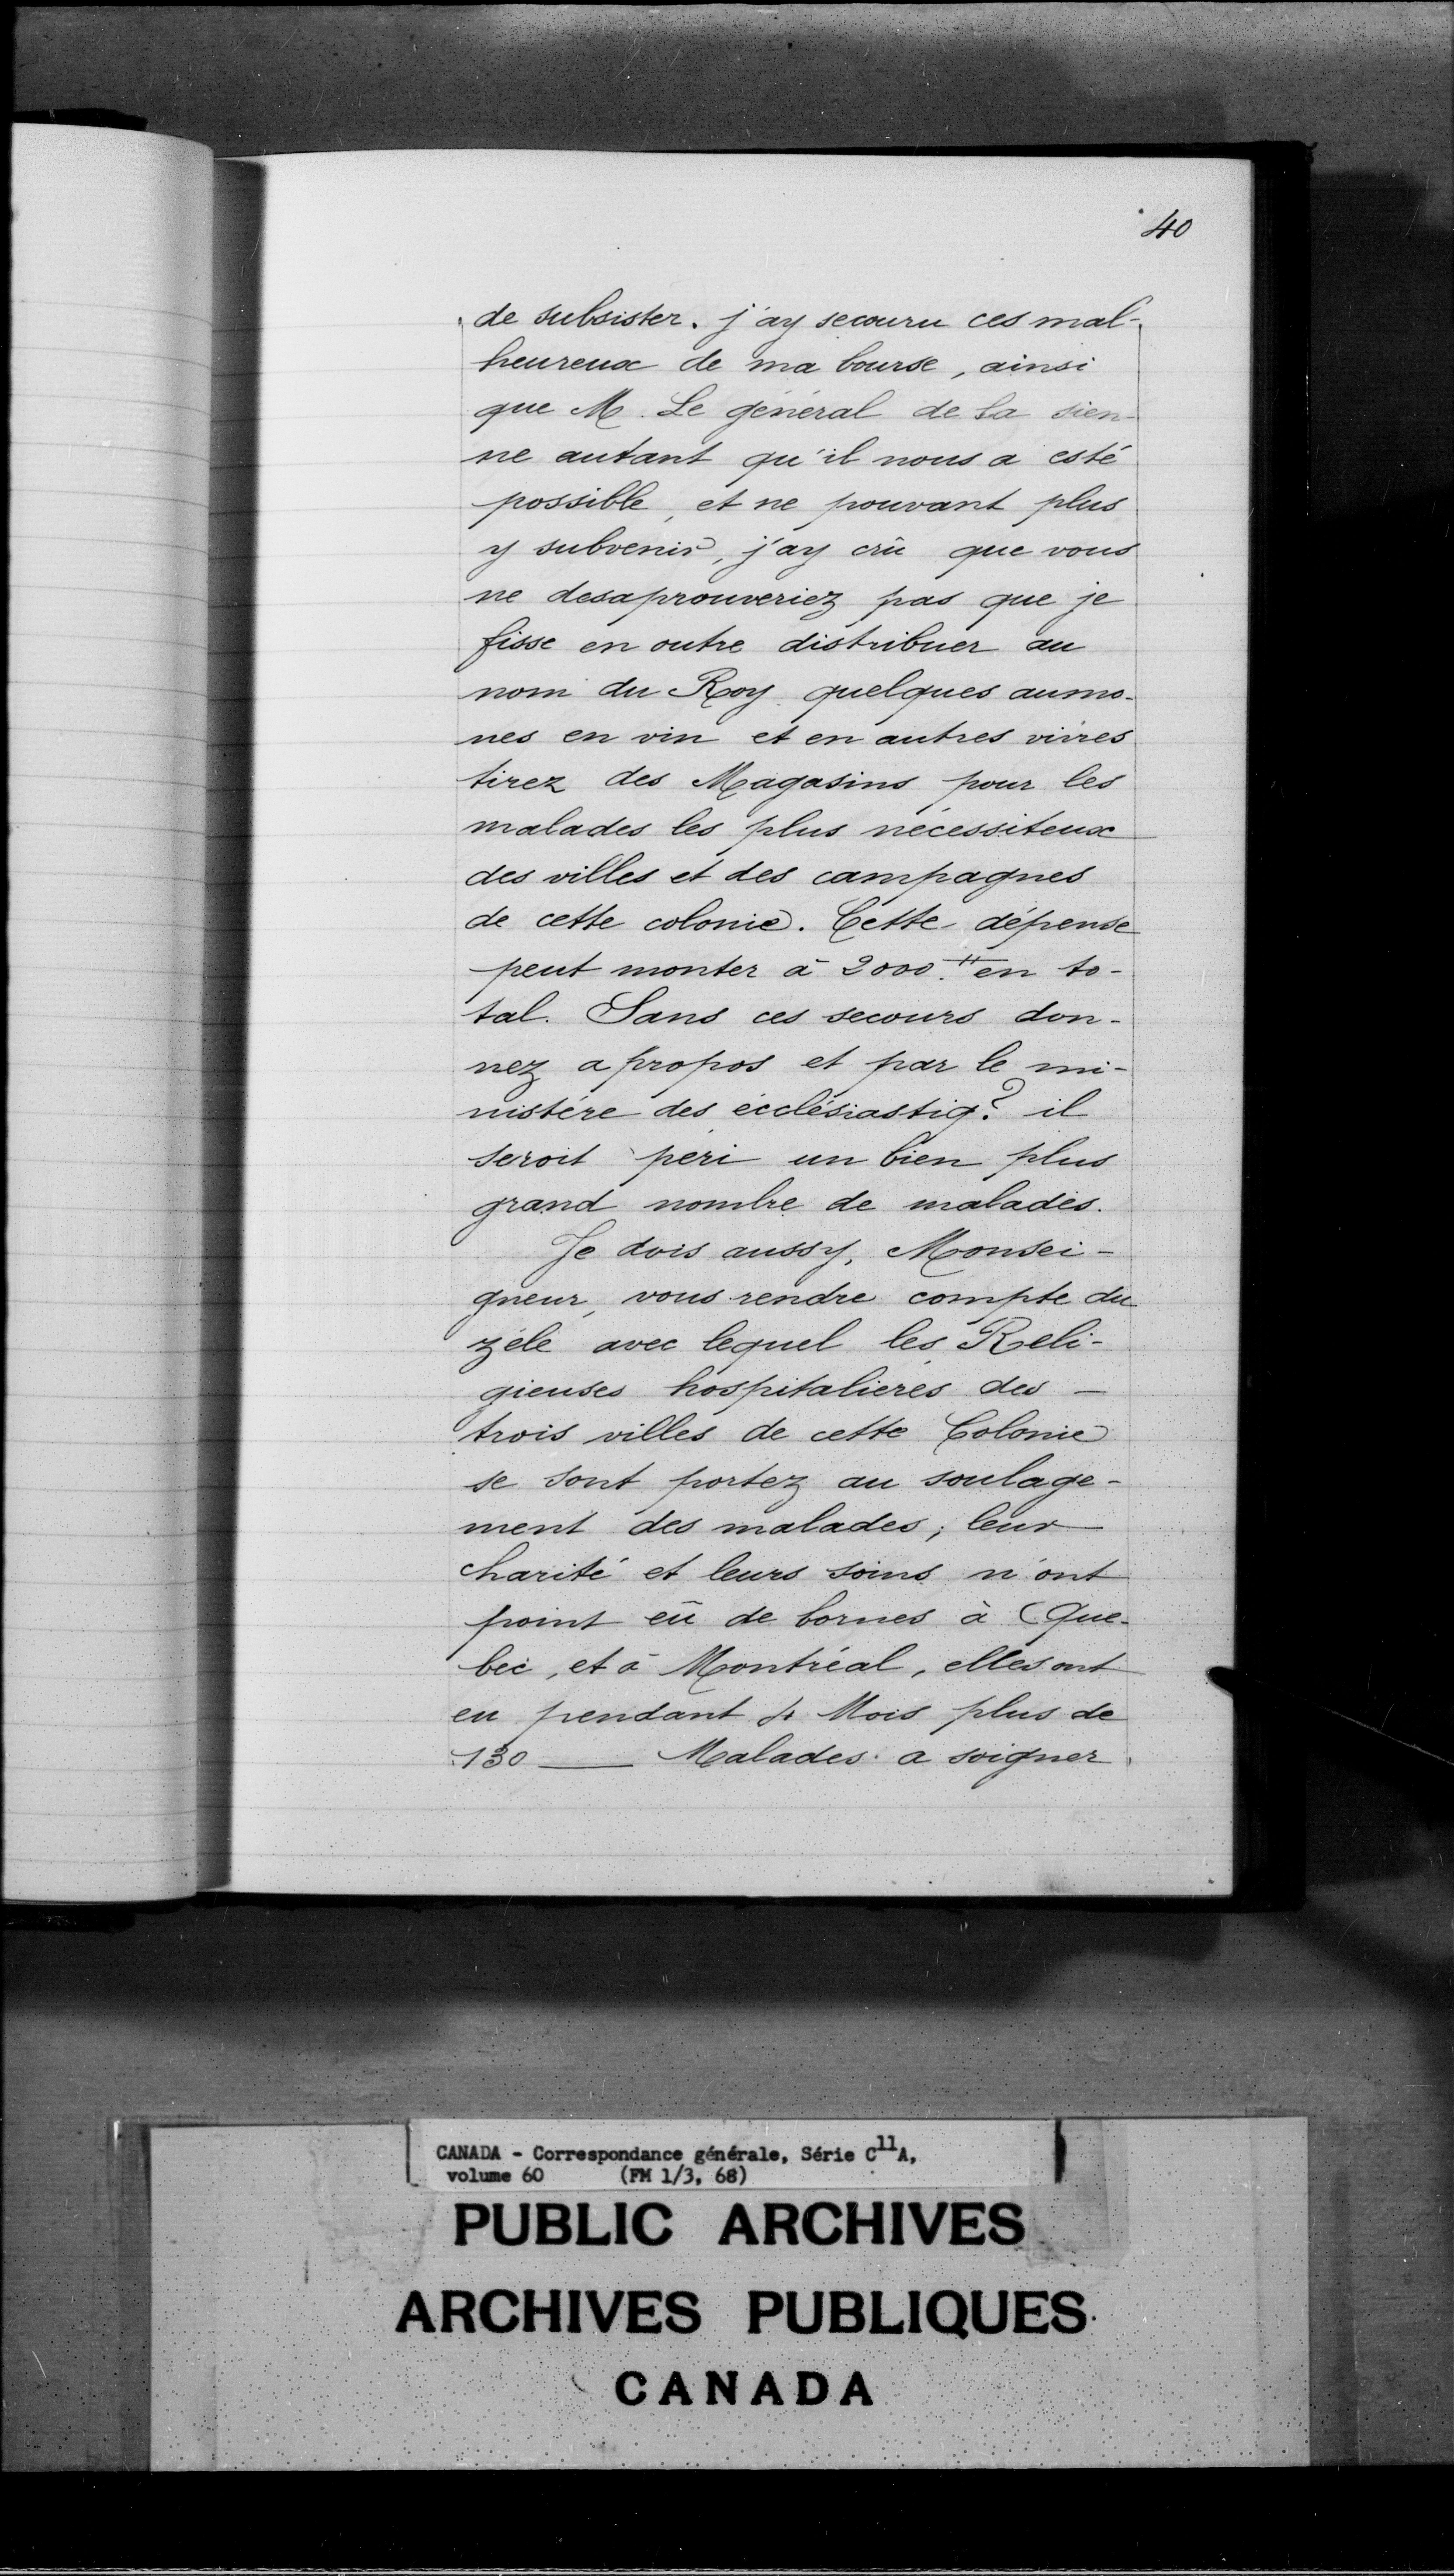 40
de subsister. j'ay secouru ces mal-
heureux de ma bourse, ainsi
que M. Le général de la sien-
ne autant qu'il nous a esté
possible, et ne pouvant plus
y subvenir, j'ay crû que vous
ne desaprouveriez pas que je
fisse en outre distribuer au
nom du Roy quelques aumo-
nes en vin et en autres vivres
tirez des Magasins pour les
malades les plus nécessiteux
des villes et des campagnes
de cette colonie. Cette dépense
peut monter à 2000.tt en to-
tal. Sans ces secours don-
nez a propos et par le mi-
nistére des écclésiastiq? il
seroit péri un bien plus
grand nombre de malades.
Je dois aussy, Monsei-
gneur, vous rendre compte du
zéle avec lequel les Reli-
gieuses hospitalieres des —
trois villes de cette Colonie
se sont portez au soulage-
ment des malades; leur
charité et leurs soins n'ont
point eû de bornes à Que-
bec, et à Montréal, elles ont
eu pendant 4 Mois plus de
130 — Malades a soigner
CANADA - Correspondance générale, Série C11A,
volume 60 (FM 1/3, 68)
PUBLIC ARCHIVES
ARCHIVES PUBLIQUES
CANADA